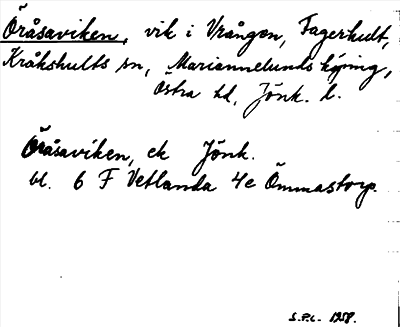 Öråsaviken, vik i Vrången, Fagerhult,
Kråkshults sn, Mariannelunds köping,
Östra hd, Jönk. l.
Öråsaviken, ek Jönk.
bl. 6 F Vetlanda 4e Ömmastorp.
S.P.L. 1958.